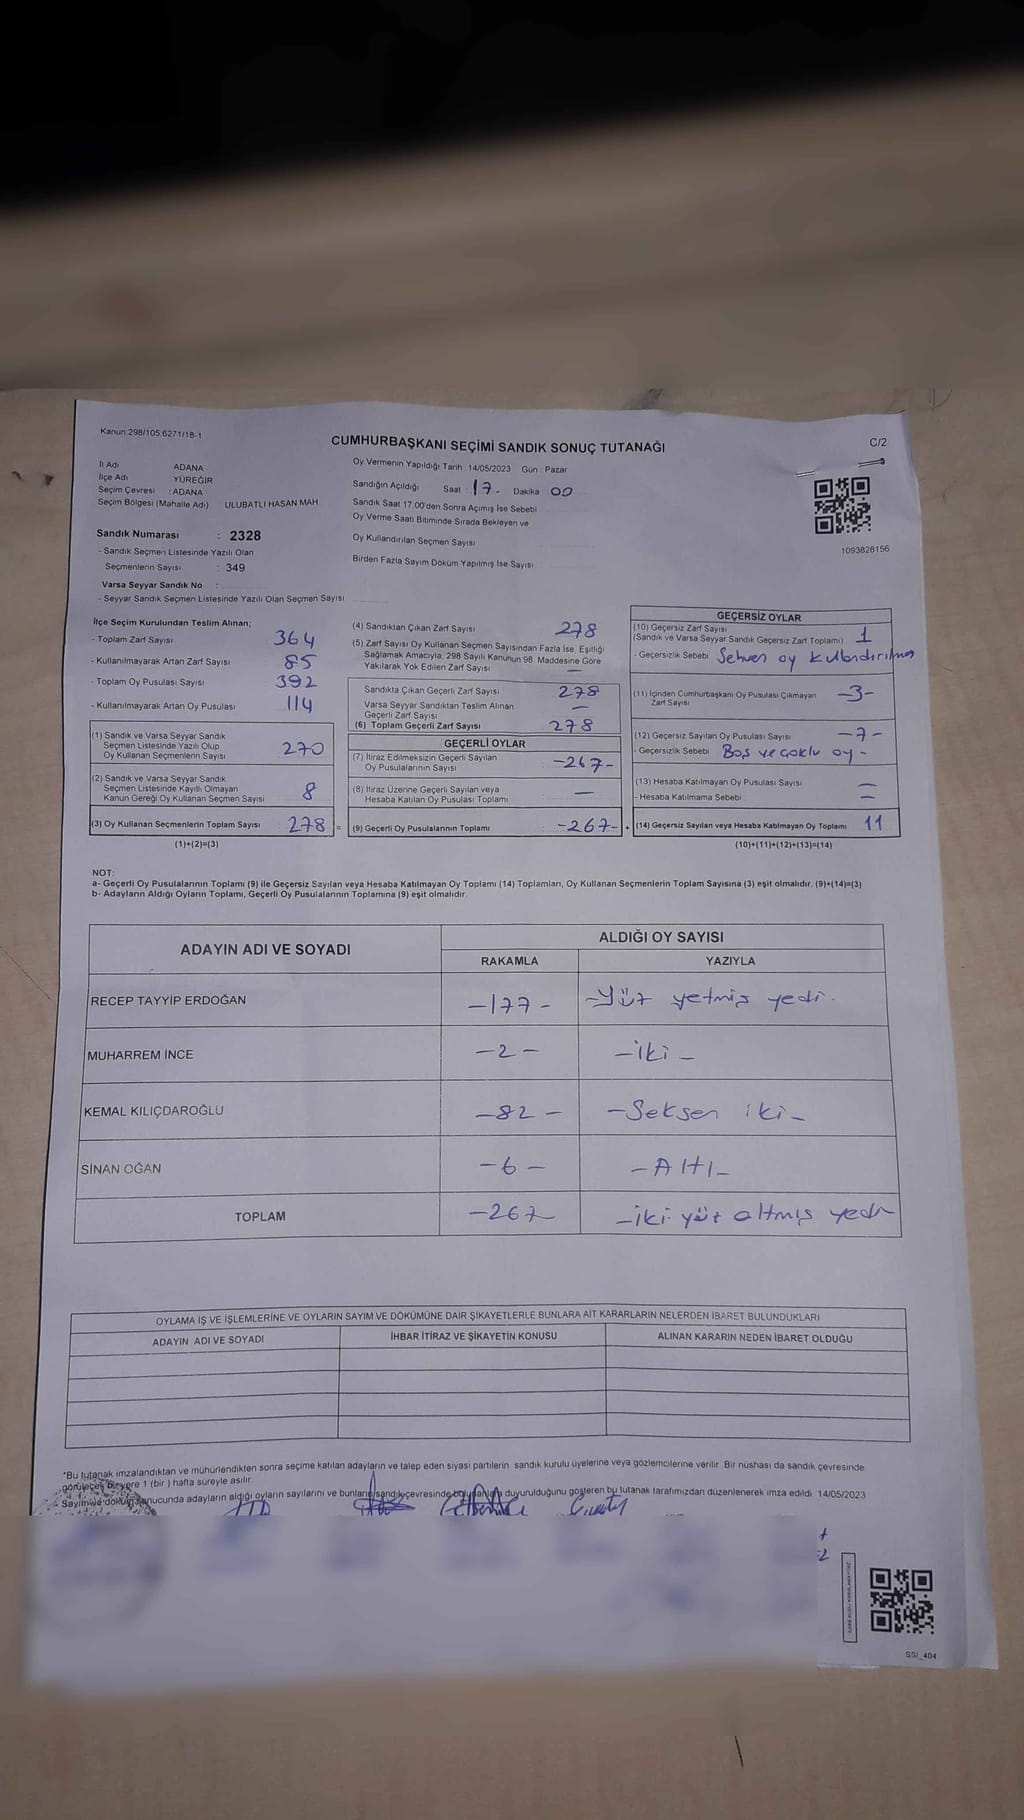 Kanun:298/105,6271/18-1
CUMHURBAŞKANI SEÇİMİ SANDIK SONUÇ TUTANAĞI
C/2
İl Adı ADANA
İlçe Adı : YÜREĞİR
Seçim Çevresi : ADANA
Seçim Bölgesi (Mahalle Adı) ULUBATLI HASAN MAH.
Oy Vermenin Yapıldığı Tarih : 14/05/2023 Gün : Pazar
Sandığın Açıldığı Saat : 17. Dakika 00
Sandık Saat 17.00'den Sonra Açmış İse Sebebi
Oy Verme Saati Bitiminde Sırada Bekleyen ve
Oy Kullandırılan Seçmen Sayısı
Birden Fazla Sayım Döküm Yapılmış İse Sayısı
1093828156
Sandık Numarası : 2328
- Sandık Seçmen Listesinde Yazılı Olan
Seçmenlerin Sayısı : 349
Varsa Seyyar Sandık No :
- Seyyar Sandık Seçmen Listesinde Yazılı Olan Seçmen Sayısı
İlçe Seçim Kurulundan Teslim Alınan;
- Toplam Zarf Sayısı 364
- Kullanılmayarak Artan Zarf Sayısı 85
- Toplam Oy Pusulası Sayısı 392
- Kullanılmayarak Artan Oy Pusulası 114
(1) Sandık ve Varsa Seyyar Sandık
Seçmen Listesinde Yazılı Olup
Oy Kullanan Seçmenlerin Sayısı 270
(2) Sandık ve Varsa Seyyar Sandık
Seçmen Listesinde Kayıtlı Olmayan
Kanun Gereği Oy Kullanan Seçmen Sayısı 8
(3) Oy Kullanan Seçmenlerin Toplam Sayısı 278 =
(1)+(2)=(3)
(4) Sandıktan Çıkan Zarf Sayısı 278
(5) Zarf Sayısı Oy Kullanan Seçmen Sayısından Fazla İse, Eşitliği
Sağlamak Amacıyla, 298 Sayılı Kanunun 98. Maddesine Göre
Yakılarak Yok Edilen Zarf Sayısı —
Sandıkta Çıkan Geçerli Zarf Sayısı 278
Varsa Seyyar Sandıktan Teslim Alınan
Geçerli Zarf Sayısı —
(6) Toplam Geçerli Zarf Sayısı 278
GEÇERLİ OYLAR
(7) İtiraz Edilmeksizin Geçerli Sayılan
Oy Pusulalarının Sayısı -267-
(8) İtiraz Üzerine Geçerli Sayılan veya
Hesaba Katılan Oy Pusulası Toplamı —
(9) Geçerli Oy Pusulalarının Toplamı -267- +
GEÇERSİZ OYLAR
(10) Geçersiz Zarf Sayısı
(Sandık ve Varsa Seyyar Sandık Geçersiz Zarf Toplamı) 1
- Geçersizlik Sebebi Sehven oy kullandırılmış
(11) İçinden Cumhurbaşkanı Oy Pusulası Çıkmayan
Zarf Sayısı -3-
(12) Geçersiz Sayılan Oy Pusulası Sayısı -7-
- Geçersizlik Sebebi Boş ve çoklu oy -
(13) Hesaba Katılmayan Oy Pusulası Sayısı =
- Hesaba Katılmama Sebebi =
(14) Geçersiz Sayılan veya Hesaba Katılmayan Oy Toplamı 11
(10)+(11)+(12)+(13)=(14)
NOT:
a- Geçerli Oy Pusulalarının Toplamı (9) ile Geçersiz Sayılan veya Hesaba Katılmayan Oy Toplamı (14) Toplamları, Oy Kullanan Seçmenlerin Toplam Sayısına (3) eşit olmalıdır. (9)+(14)=(3)
b- Adayların Aldığı Oyların Toplamı, Geçerli Oy Pusulalarının Toplamına (9) eşit olmalıdır.
ADAYIN ADI VE SOYADI ALDIĞI OY SAYISI
RAKAMLA YAZIYLA
RECEP TAYYİP ERDOĞAN -177- -Yüz yetmiş yedi.
MUHARREM İNCE -2- -iki-
KEMAL KILIÇDAROĞLU -82- -Seksen iki-
SİNAN OĞAN -6- -Altı-
TOPLAM -267- -iki yüz altmış yedi
OYLAMA İŞ VE İŞLEMLERİNE VE OYLARIN SAYIM VE DÖKÜMÜNE DAİR ŞİKAYETLERLE BUNLARA AİT KARARLARIN NELERDEN İBARET BULUNDUKLARI
ADAYIN ADI VE SOYADI İHBAR İTİRAZ VE ŞİKAYETİN KONUSU ALINAN KARARIN NEDEN İBARET OLDUĞU
*Bu tutanak imzalandıktan ve mühürlendikten sonra seçime katılan adayların ve talep eden siyasi partilerin sandık kurulu üyelerine veya gözlemcilerine verilir. Bir nüshası da sandık çevresinde
görülecek bir yere 1 (bir) hafta süreyle asılır.
Sayım ve döküm sonucunda adayların aldığı oyların sayılarını ve bunların sandık çevresinde duyurulduğunu gösteren bu tutanak tarafımızdan düzenlenerek imza edildi. 14/05/2023
SSI_404